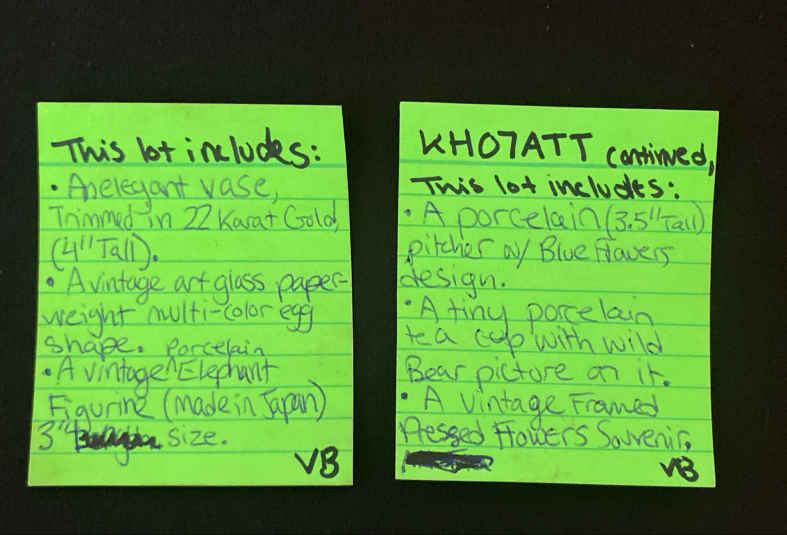 This lot includes:
• An elegant vase,
Trimmed in 22 Karat Gold,
(4" Tall).
• A vintage art glass paper-
weight multi-color egg
shape. Porcelain
• A vintage^Elephant
Figurine (made in Japan)
3" size.
VB
KH07ATT continued,
This lot includes:
• A porcelain (3.5" Tall)
pitcher w/ Blue Flowers
design.
• A tiny porcelain
tea cup with wild
Bear picture on it.
• A Vintage Framed
Pressed Flowers Souvenir.
VB